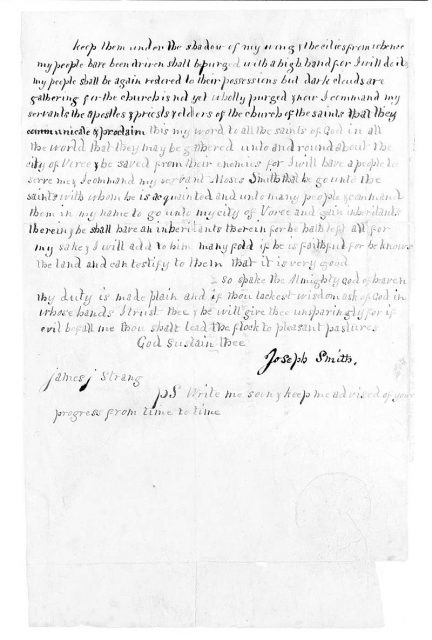 keep them under the shadow of my wing & the cities from whence
my people have been driven shall be purged with a high hand for I will do it &
my people shall be again restored to their possessions but dark clouds are
gathering for the church is not yet wholly purged & now I command my
servants the apostles & priests & elders of the church of the saints that they
communicate & proclaim this my word to all the saints of God in all
the world that they may be gathered unto and round about the
city of Voree & be saved from their enemies for I will have a people to
serve me & I command my servant Moses Smith that he go unto the
saints with whom he is acquainted and unto many people & command
them in my name to go unto my city of Voree and gain inheritants
therein & he shall have an inheritants therein for he hath left all for
my sake & I will add to him many fold if he is faithful for he knows
the land and can testify to them that it is very good
so spake the Almighty God of heaven
thy duty is made plain and if thou lackest wisdom ask of God in
whose hands I trust thee & he will give thee unsparingly for if
evil befall me thou shalt lead the flock to pleasant pastures
God sustain thee
Joseph Smith.
James J Strang
PS Write me soon & keep me advised of your
progress from time to time